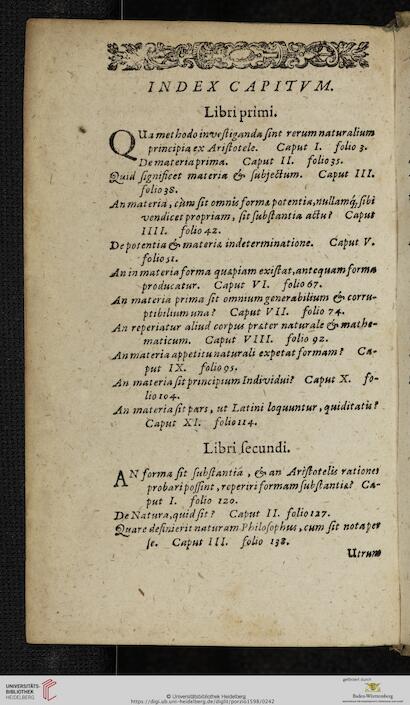 INDEX CAPITVM.
Libri primi.
QUa methodo inveſtiganda ſint rerum naturalium
principia ex Ariſtotele. Caput I. folio 3.
De materia prima. Caput II. folio 35.
Quid ſignificet materia & ſubjectum. Caput III.
folio 38.
An materia, cùm ſit omnis forma potentia, nullamq́, ſibi
vendicet propriam, ſit ſubſtantia actu? Caput
IIII. folio 42.
De potentia & materia indeterminatione. Caput V.
folio 51.
An in materia forma quæpiam exiſtat, antequam forma
producatur. Caput VI. folio 67.
An materia prima ſit omnium generabilium & corru-
ptibilium una? Caput VII. folio 74.
An reperiatur aliud corpus præter naturale & mathe-
maticum. Caput VIII. folio 92.
An materia appetitu naturali expetat formam? Ca-
put IX. folio 95.
An materia ſit principium Individui? Caput X. fo-
lio 104.
An materia ſit pars, ut Latini loquuntur, quiditatis?
Caput XI. folio 114.
Libri ſecundi.
AN forma ſit ſubſtantia, & an Ariſtotelis rationes
probari poſſint, reperiri formam ſubſtantia? Ca-
put I. folio 120.
De Natura, quid ſit? Caput II. folio 127.
Quare definierit naturam Philoſophus, cum ſit nota per
ſe. Caput III. folio 138.
Utrum
UNIVERSITÄTS-
BIBLIOTHEK
HEIDELBERG
© Universitätsbibliothek Heidelberg
https://digi.ub.uni-heidelberg.de/diglit/porzio1598/0242
gefördert durch
Baden-Württemberg